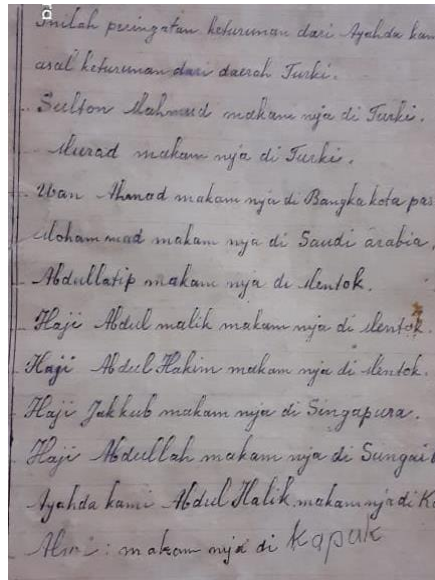 Inilah peringatan keturunan dari Ayahda kam
asal keturunan dari daerah Turki.
Sulton Mahmud makam nja di Turki.
Murad makam nja di Turki.
Wan Ahmad makam nja di Bangka kota pas
Mohammad makam nja di Saudi arabia.
Abdullatip makam nja di Mentok.
Haji Abdul malik makam nja di Mentok.
Haji Abdul Hakim makam nja di Mentok.
Haji Jakkub makam nja di Singapura.
Haji Abdullah makam nja di Sungai
Ayahda kami Abdul Halik makam nja di Ka
: makam nja di Kapuk